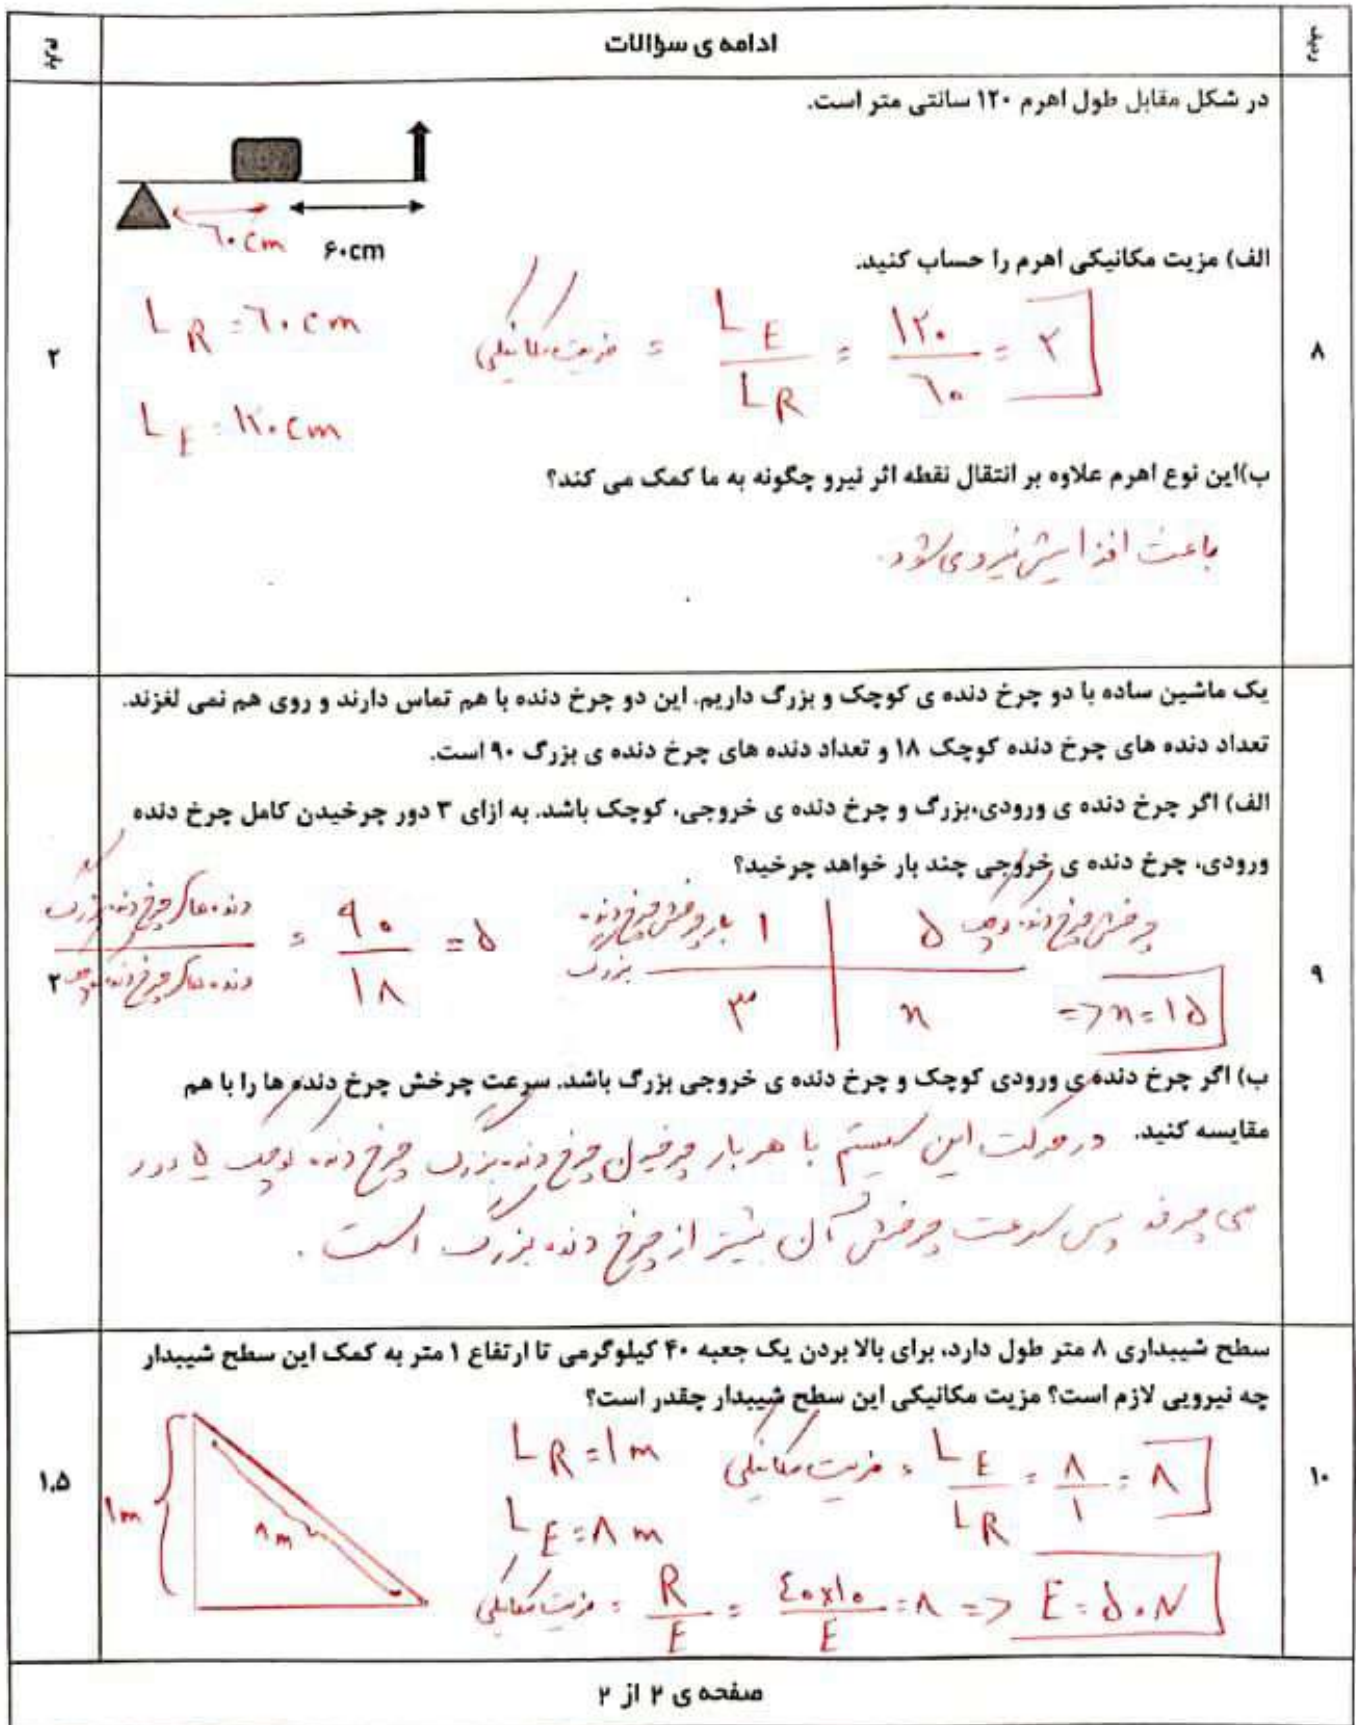 ردیف
ادامه ی سؤالات
نمره
۸
در شکل مقابل طول اهرم ۱۲۰ سانتی متر است.
۶۰cm
۶۰cm
الف) مزیت مکانیکی اهرم را حساب کنید.
L_R = ۶۰ cm
مزیت مکانیکی = L_E / L_R = ۱۲۰ / ۶۰ = ۲
L_E = ۱۲۰ cm
۲
ب)این نوع اهرم علاوه بر انتقال نقطه اثر نیرو چگونه به ما کمک می کند؟
باعث افزایش نیرو می‌شود.
۹
یک ماشین ساده با دو چرخ دنده ی کوچک و بزرگ داریم. این دو چرخ دنده با هم تماس دارند و روی هم نمی لغزند.
تعداد دنده های چرخ دنده کوچک ۱۸ و تعداد دنده های چرخ دنده ی بزرگ ۹۰ است.
الف) اگر چرخ دنده ی ورودی،بزرگ و چرخ دنده ی خروجی، کوچک باشد. به ازای ۳ دور چرخیدن کامل چرخ دنده
ورودی، چرخ دنده ی خروجی چند بار خواهد چرخید؟
دنده های چرخ دنده بزرگ / دنده های چرخ دنده کوچک = ۹۰ / ۱۸ = ۵
۱ بار چرخش چرخ دنده بزرگ | ۵ چرخش چرخ دنده کوچک
۳ | n => n = ۱۵
۲
ب) اگر چرخ دنده ی ورودی کوچک و چرخ دنده ی خروجی بزرگ باشد. سرعت چرخش چرخ دنده ها را با هم
مقایسه کنید. در حرکت این سیستم با هر بار چرخیدن چرخ دنده بزرگ چرخ دنده کوچک ۵ دور
می چرخد پس سرعت چرخش آن بیشتر از چرخ دنده بزرگ است.
۱۰
سطح شیبداری ۸ متر طول دارد، برای بالا بردن یک جعبه ۴۰ کیلوگرمی تا ارتفاع ۱ متر به کمک این سطح شیبدار
چه نیرویی لازم است؟ مزیت مکانیکی این سطح شیبدار چقدر است؟
۱m
۸m
L_R = ۱ m
مزیت مکانیکی = L_E / L_R = ۸ / ۱ = ۸
L_E = ۸ m
مزیت مکانیکی = R / E = ٤۰×۱۰ / E = ۸ => E = ۵۰ N
۱.۵
صفحه ی ۲ از ۲